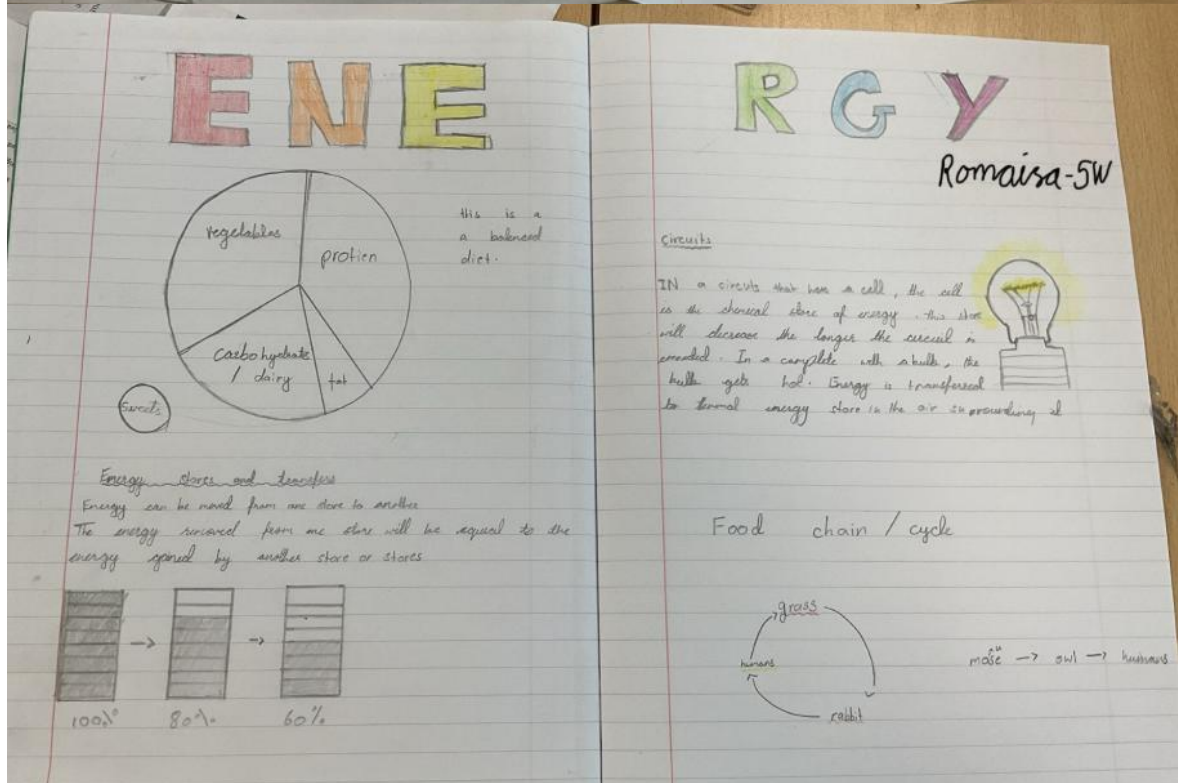 ENE
RGY
Romaisa-5W
vegetables
protien
carbohydrate
/ dairy
fat
sweets
this is a
a balenced
diet.
Energy stores and transfers
Energy can be moved from one store to another
The energy removed from one store will be equal to the
energy gained by another store or stores
100%
80%
60%
Circuits
IN a circuts that have a cell, the cell
is the chemical store of energy. this store
will decrease the longer the circuit is
In a complete with a bulb, the
bulb gets hot. Energy is transfered
to termal energy store in the air surrounding it
Food chain / cycle
grass
humans
rabbit
→ owl → humans